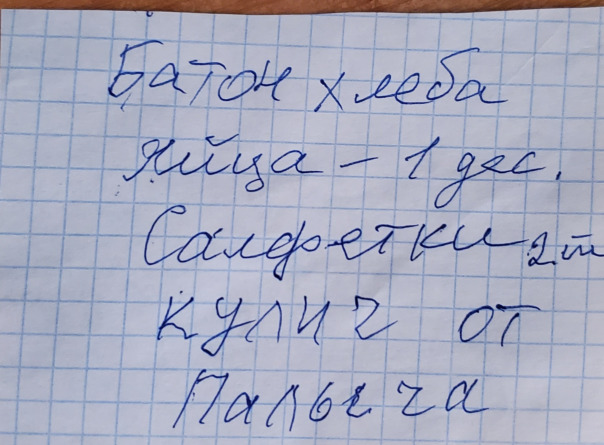 Батон хлеба
Яйца - 1 дес.
Салфетки
Кулич от
Палыча